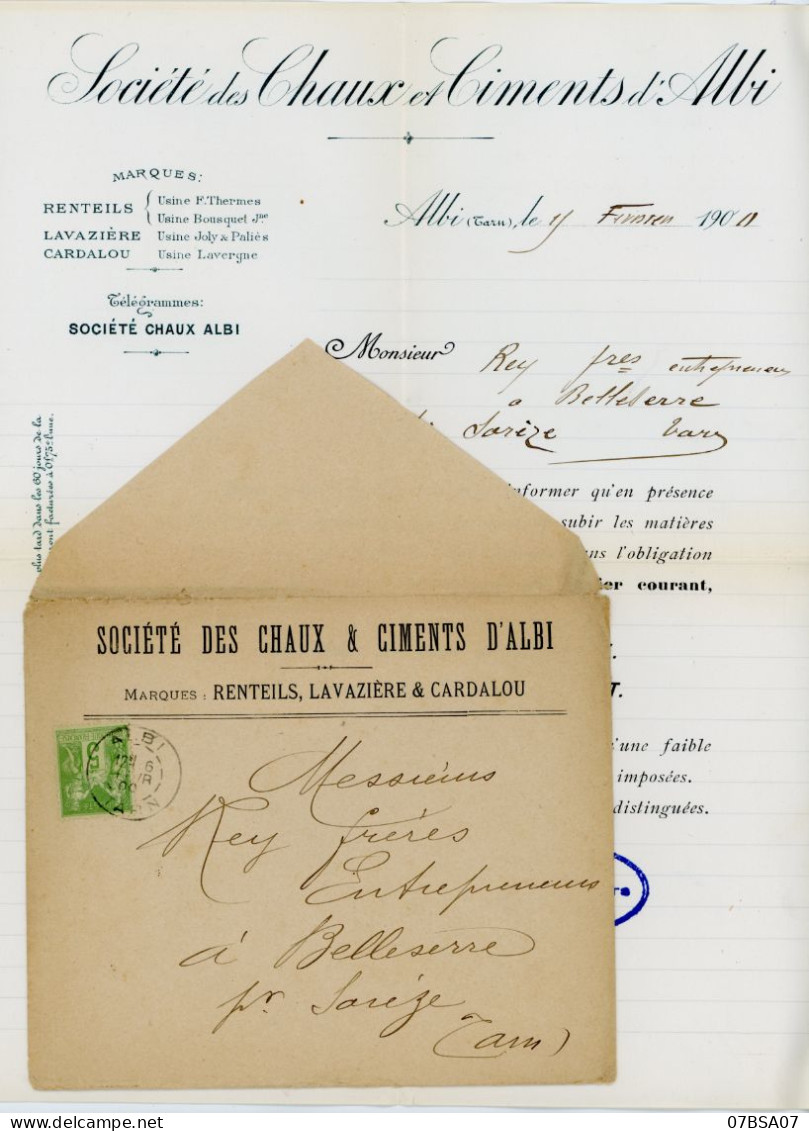 Société des Chaux et Ciments d'Albi
MARQUES:
RENTEILS { Usine F. Thermes
Usine Bousquet Jne
LAVAZIÈRE Usine Joly & Paliès
CARDALOU Usine Lavergne
Télégrammes:
SOCIÉTÉ CHAUX ALBI
Albi (Tarn), le 190
Monsieur Rey fres entrepreneurs
a Belleserre
Sorèze Tarn
plus tard dans les 60 jours de la
ront facturées à 0f75 l'une.
informer qu'en présence
subir les matières
l'obligation
courant,
T.
d'une faible
imposées.
distinguées.
SOCIÉTÉ DES CHAUX & CIMENTS D'ALBI
MARQUES : RENTEILS, LAVAZIÈRE & CARDALOU
ALBI
TARN
Messieurs
Rey frères
Entrepreneurs
à Belleserre
pr Sorèze
(Tarn)
07BSA07